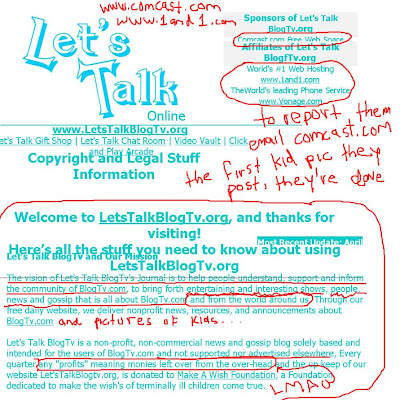 www.comcast.com
www.1and1.com
Let's
Talk
Online
www.LetsTalkBlogTv.org
Let's Talk Gift Shop | Let's Talk Chat Room | Video Vault | Click
and Play Arcade
Copyright and Legal Stuff
Information
Sponsors of Let's Talk
BlogTv.org
Comcast.com Free Web Space
Affiliates of Let's Talk
BlogTv.org
World's #1 Web Hosting
www.1and1.com
TheWorld's leading Phone Service
www.Vonage.com
to report them
email comcast.com
the first kid pic they
post, they're done
Welcome to LetsTalkBlogTv.org, and thanks for
visiting!
Most Recent Update: April
Here's all the stuff you need to know about using
Let's Talk BlogTv and Our Mission
LetsTalkBlogTv.org
The vision of Let's Talk BlogTv's Journal is to help people understand, support and inform
the community of BlogTv.com, to bring forth entertaining and interesting shows, people,
news and gossip that is all about BlogTv.com and from the world around us. Through our
free daily website, we deliver nonprofit news, resources, and announcements about
BlogTv.com
and pictures of kids...
Let's Talk BlogTv is a non-profit, non-commercial news and gossip blog solely based and
intended for the users of BlogTv.com and not supported nor advertised elsewhere, Every
quarter any "profits" meaning monies left over from the over-head and the up keep of our
website LetsTalkBlogtv.org, is donated to Make A Wish Foundation, a Foundation,
dedicated to make the wish's of terminally ill children come true.
LMAO